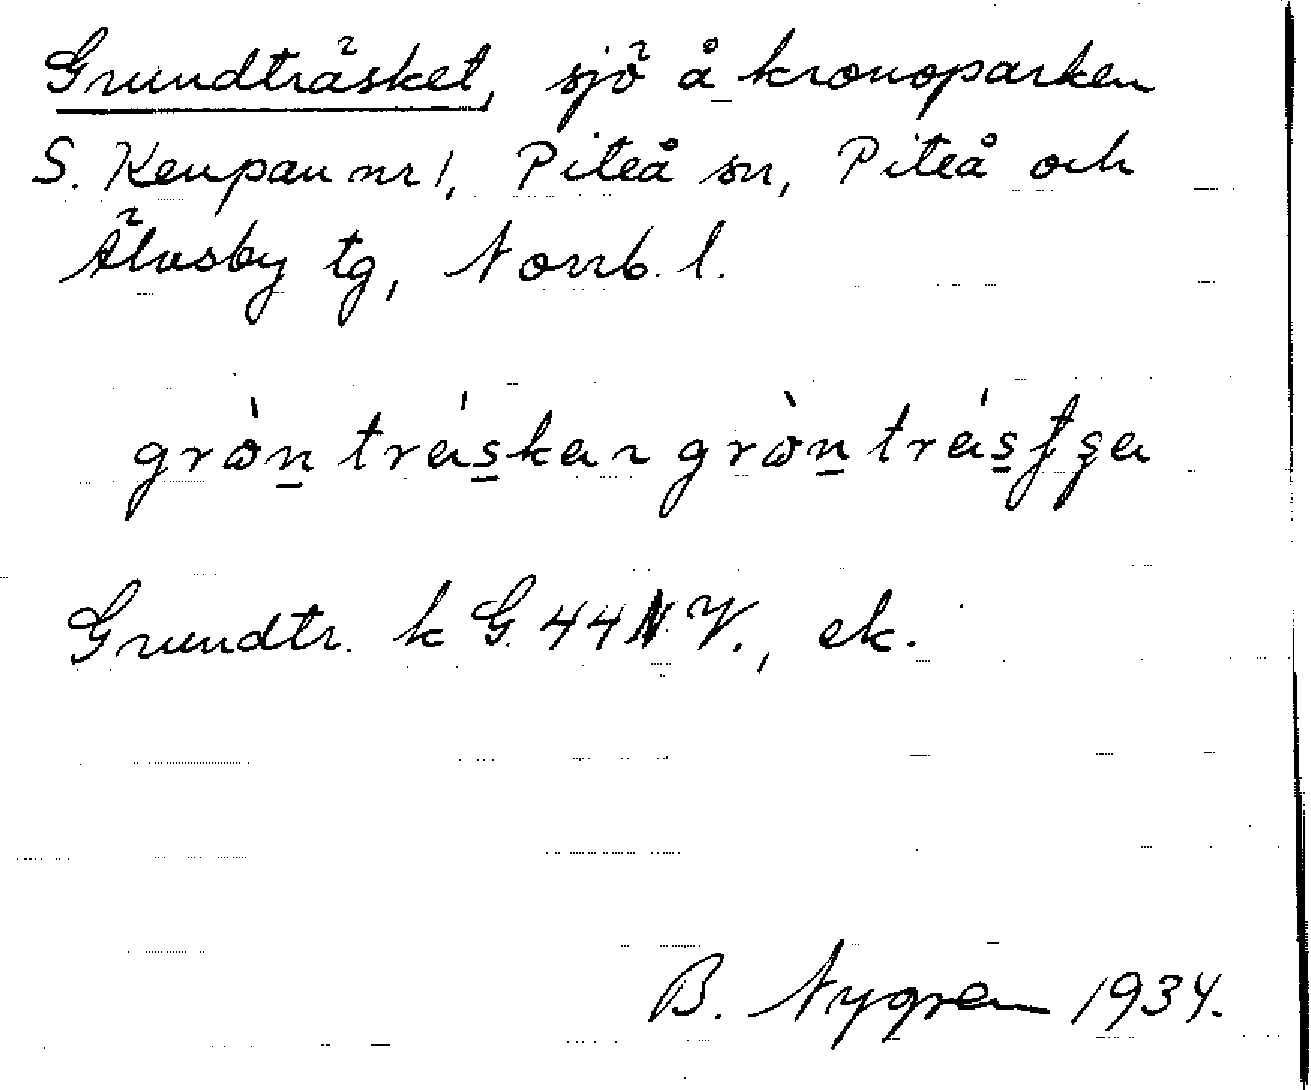 Grundträsket, sjö å kronoparken
S. Kenpau nr 1, Piteå sn, Piteå och
Älvsby tg, Norrb. l.
Grundtr. k G. 44 N.V., ek.
B. Nygren 1934.